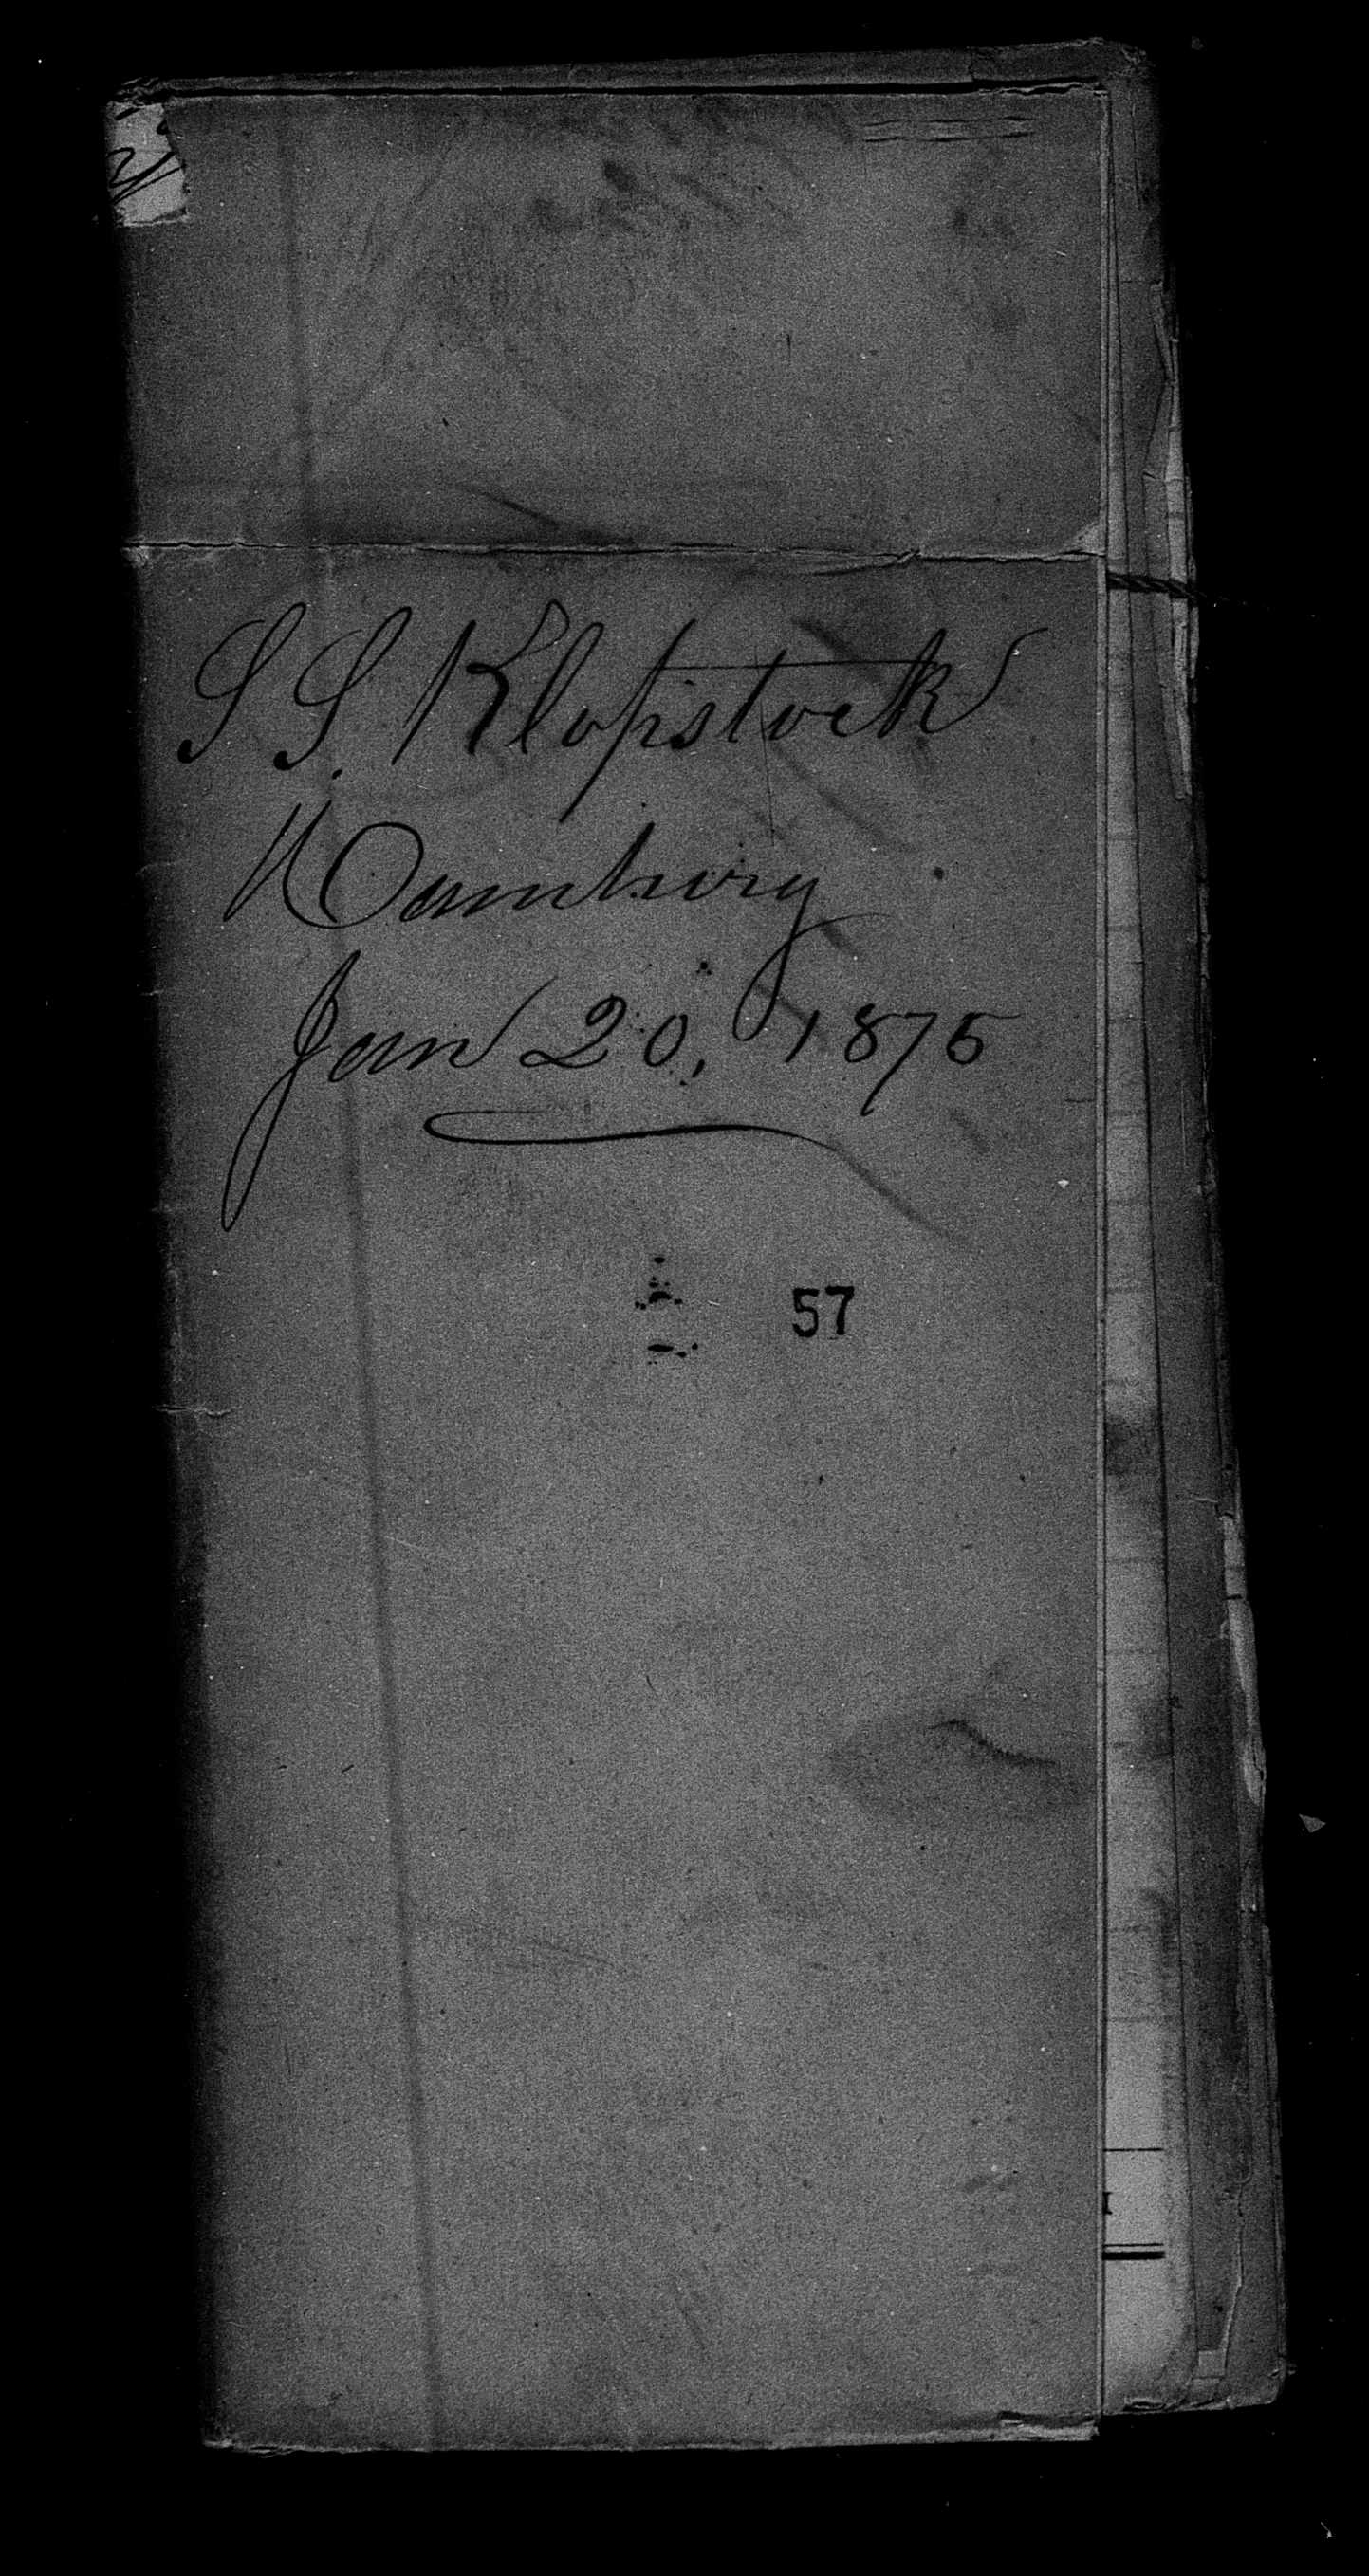 S.S. Klopstock
Hamburg
Jan 20, 1875
57